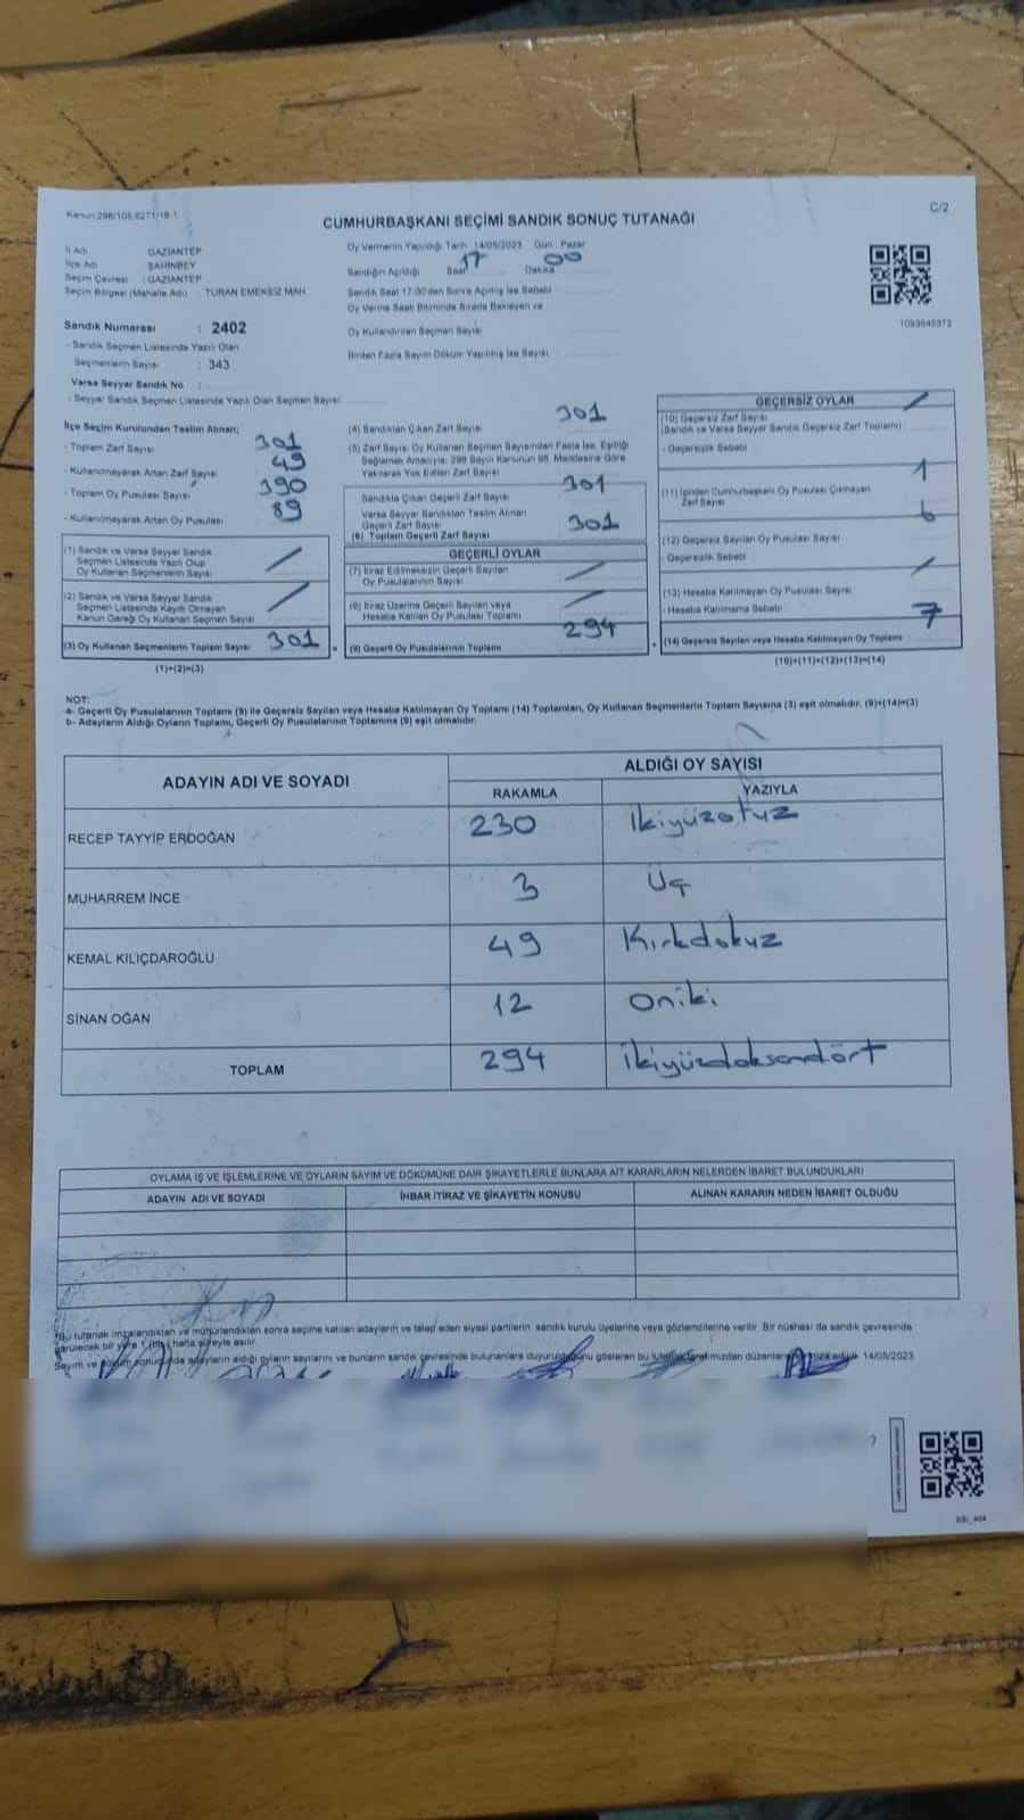 Kanun 298/105,6271/18-1
C/2
CUMHURBAŞKANI SEÇİMİ SANDIK SONUÇ TUTANAĞI
İl Adı GAZİANTEP
İlçe Adı ŞAHİNBEY
Seçim Çevresi : GAZİANTEP
Seçim Bölgesi (Mahalle Adı) TURAN EMEKSİZ MAH.
Sandık Numarası : 2402
- Sandık Seçmen Listesinde Yazılı Olan
Seçmenlerin Sayısı : 343
Varsa Seyyar Sandık No :
- Seyyar Sandık Seçmen Listesinde Yazılı Olan Seçmen Sayısı
Oy Vermenin Yapıldığı Tarih 14/05/2023 Gün : Pazar
Sandığın Açıldığı Saat 17 Dakika 00
Sandık Saat 17:00'den Sonra Açılmış İse Sebebi
Oy Verme Saati Bitiminde Sırada Bekleyen ve
Oy Kullandırılan Seçmen Sayısı
Birden Fazla Sayım Döküm Yapılmış İse Sayısı
1093645372
İlçe Seçim Kurulundan Teslim Alınan;
- Toplam Zarf Sayısı 301
- Kullanılmayarak Artan Zarf Sayısı 49
- Toplam Oy Pusulası Sayısı 390
- Kullanılmayarak Artan Oy Pusulası 89
(1) Sandık ve Varsa Seyyar Sandık
Seçmen Listesinde Yazılı Olup
Oy Kullanan Seçmenlerin Sayısı /
(2) Sandık ve Varsa Seyyar Sandık
Seçmen Listesinde Kayıtlı Olmayan
Kanun Gereği Oy Kullanan Seçmen Sayısı /
(3) Oy Kullanan Seçmenlerin Toplam Sayısı 301
(1)+(2)=(3)
(4) Sandıktan Çıkan Zarf Sayısı 301
(5) Zarf Sayısı Oy Kullanan Seçmen Sayısından Fazla İse, Eşitliği
Sağlamak Amacıyla; 298 Sayılı Kanunun 98. Maddesine Göre
Yakılarak Yok Edilen Zarf Sayısı
Sandıkta Çıkan Geçerli Zarf Sayısı 301
Varsa Seyyar Sandıktan Teslim Alınan
Geçerli Zarf Sayısı
(6) Toplam Geçerli Zarf Sayısı 301
GEÇERLİ OYLAR
(7) İtiraz Edilmeksizin Geçerli Sayılan
Oy Pusulalarının Sayısı /
(8) İtiraz Üzerine Geçerli Sayılan veya
Hesaba Katılan Oy Pusulası Toplamı /
(9) Geçerli Oy Pusulalarının Toplamı 294
GEÇERSİZ OYLAR
(10) Geçersiz Zarf Sayısı /
(Sandık ve Varsa Seyyar Sandık Geçersiz Zarf Toplamı)
- Geçersizlik Sebebi
(11) İçinden Cumhurbaşkanı Oy Pusulası Çıkmayan
Zarf Sayısı 1
(12) Geçersiz Sayılan Oy Pusulası Sayısı 6
- Geçersizlik Sebebi
(13) Hesaba Katılmayan Oy Pusulası Sayısı /
- Hesaba Katılmama Sebebi
(14) Geçersiz Sayılan veya Hesaba Katılmayan Oy Toplamı 7
(10)+(11)+(12)+(13)=(14)
NOT:
a- Geçerli Oy Pusulalarının Toplamı (9) ile Geçersiz Sayılan veya Hesaba Katılmayan Oy Toplamı (14) Toplamları, Oy Kullanan Seçmenlerin Toplam Sayısına (3) eşit olmalıdır. (9)+(14)=(3)
b- Adayların Aldığı Oyların Toplamı, Geçerli Oy Pusulalarının Toplamına (9) eşit olmalıdır.
ADAYIN ADI VE SOYADI ALDIĞI OY SAYISI
RAKAMLA YAZIYLA
RECEP TAYYİP ERDOĞAN 230 İkiyüzotuz
MUHARREM İNCE 3 Üç
KEMAL KILIÇDAROĞLU 49 Kırkdokuz
SİNAN OĞAN 12 Oniki
TOPLAM 294 İkiyüzdoksandört
OYLAMA İŞ VE İŞLEMLERİNE VE OYLARIN SAYIM VE DÖKÜMÜNE DAİR ŞİKAYETLERLE BUNLARA AİT KARARLARIN NELERDEN İBARET BULUNDUKLARI
ADAYIN ADI VE SOYADI İHBAR İTİRAZ VE ŞİKAYETİN KONUSU ALINAN KARARIN NEDEN İBARET OLDUĞU
*Bu tutanak imzalandıktan ve mühürlendikten sonra seçime katılan adayların ve talep eden siyasi partilerin sandık kurulu üyelerine veya gözlemcilerine verilir. Bir nüshası da sandık çevresinde
görülecek bir yere 1 (bir) hafta süreyle asılır.
Sayım ve sonunda adayların aldığı oyların sayılarını ve bunların sandık çevresinde bulunanlara duyurulduğunu gösteren bu 14/05/2023